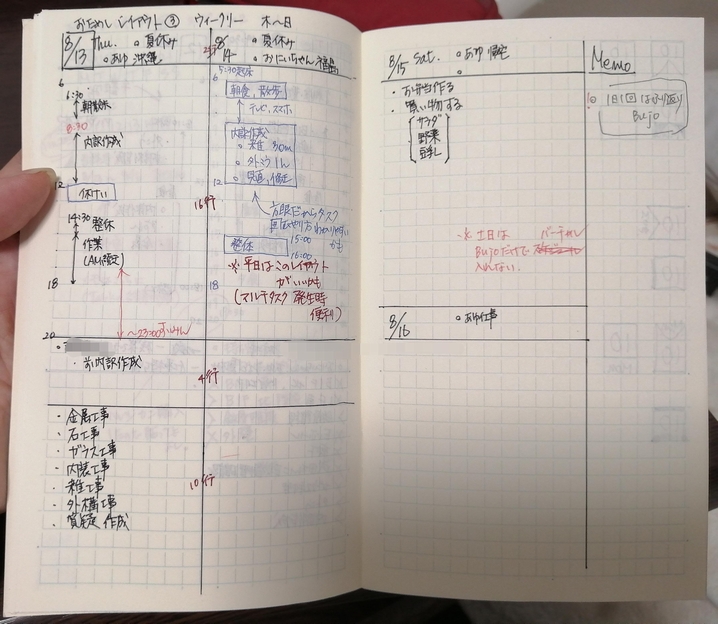 おためしレイアウト③ ウィークリー 木〜日
8/13 Thu. ○夏休み
○あゆ 沖縄
6
6:30
朝散歩
8:30
内訳作成
12
休けい
14:30 整体
作業
18
20
〜23:00
お内訳作成
・金属工事
・石工事
・ガラス工事
・内装工事
・雑工事
・外構工事
・質疑作成
8/14 ○夏休み
○おにいちゃん 福島
5:30起床
6
朝食、散歩
テレビ、スマホ
内訳作成
○雑 30m
○外コウ 1h
○見直、修正
12
16行
方眼だからタスク
わかりやすい
かも
整体
15:00
16:00
※平日はこのレイアウト
がいいかも
18
(マルチタスク発生時
便利)
4行
10行
8/15 Sat. ○あゆ 帰宅
○
・お弁当作る
・買い物する
サラダ
野菜
豆乳
※土日は バーチカル
BuJoだけで
入れない。
8/16 ○あゆ仕事
Memo
1日1回はふり返り
BuJo